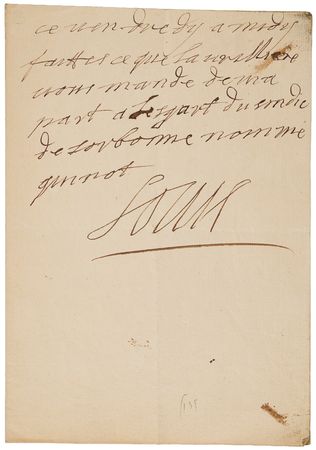 ce vendredy a midy
faittes ce que la vrilliere
vous mande de ma
part a lesgart du sindic
de sorbonne nommé
quinot
Louis